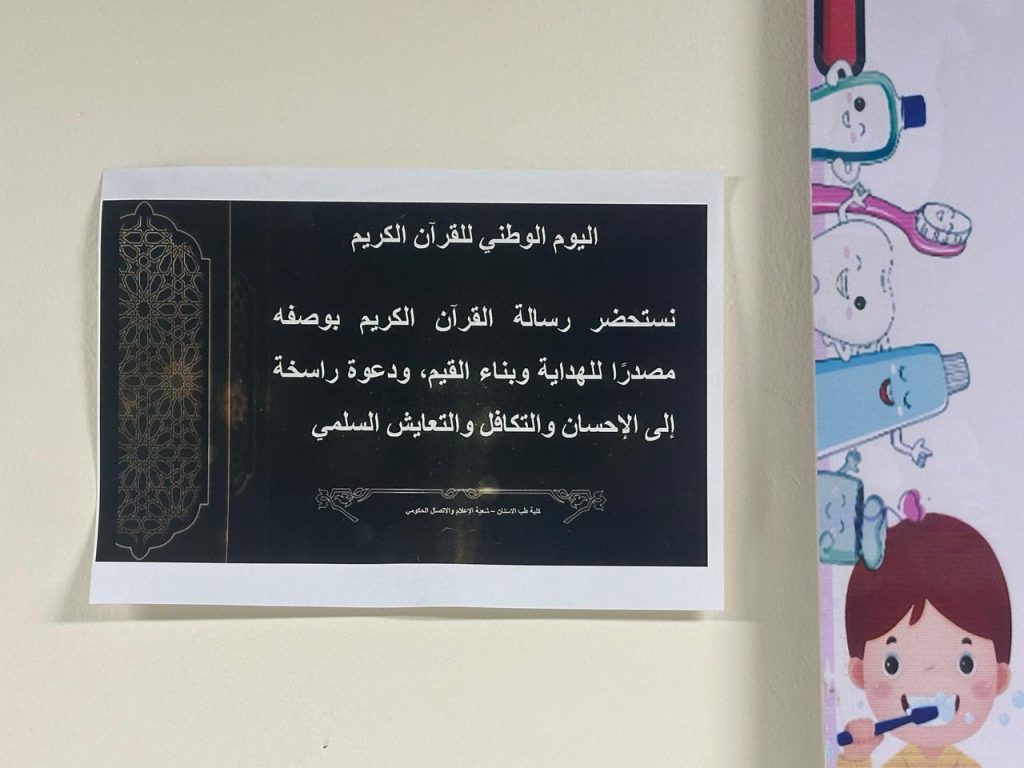 اليوم الوطني للقرآن الكريم
نستحضر رسالة القرآن الكريم بوصفه
مصدرًا للهداية وبناء القيم، ودعوة راسخة
إلى الإحسان والتكافل والتعايش السلمي
كلية طب الاسنان – شعبة الإعلام والاتصال الحكومي